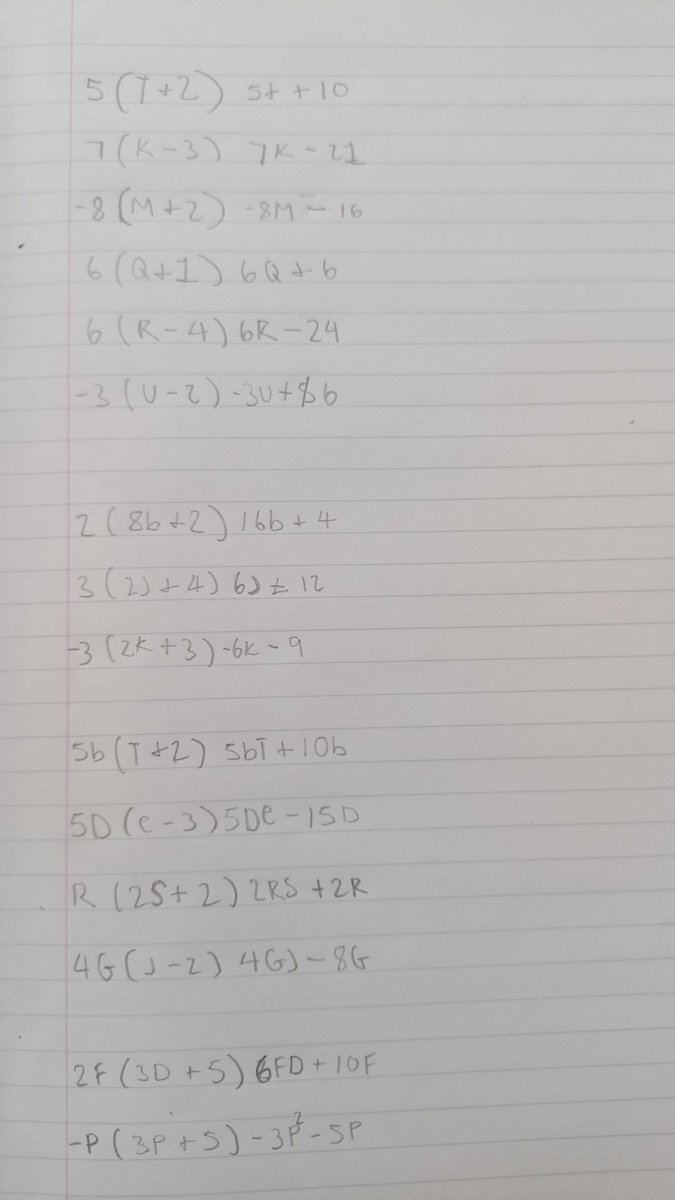 5(T+2) 5t+10
7(K-3) 7K-21
-8(M+2) -8M-16
6(Q+1) 6Q+6
6(R-4) 6R-24
-3(U-2) -3U+6
2(8b+2) 16b+4
3(2J+4) 6J+12
-3(2K+3) -6K-9
5b(T+2) 5bT+10b
5D(e-3) 5De-15D
R(2S+2) 2RS+2R
4G(J-2) 4GJ-8G
2F(3D+5) 6FD+10F
-P(3P+5) -3P²-5P